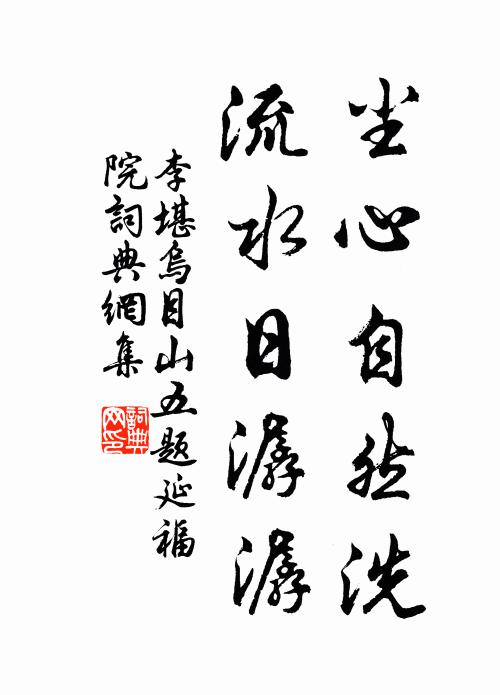 尘心自然洗
流水日潺潺
李堪烏目山五题延福
院詞典網集
詞典
网印